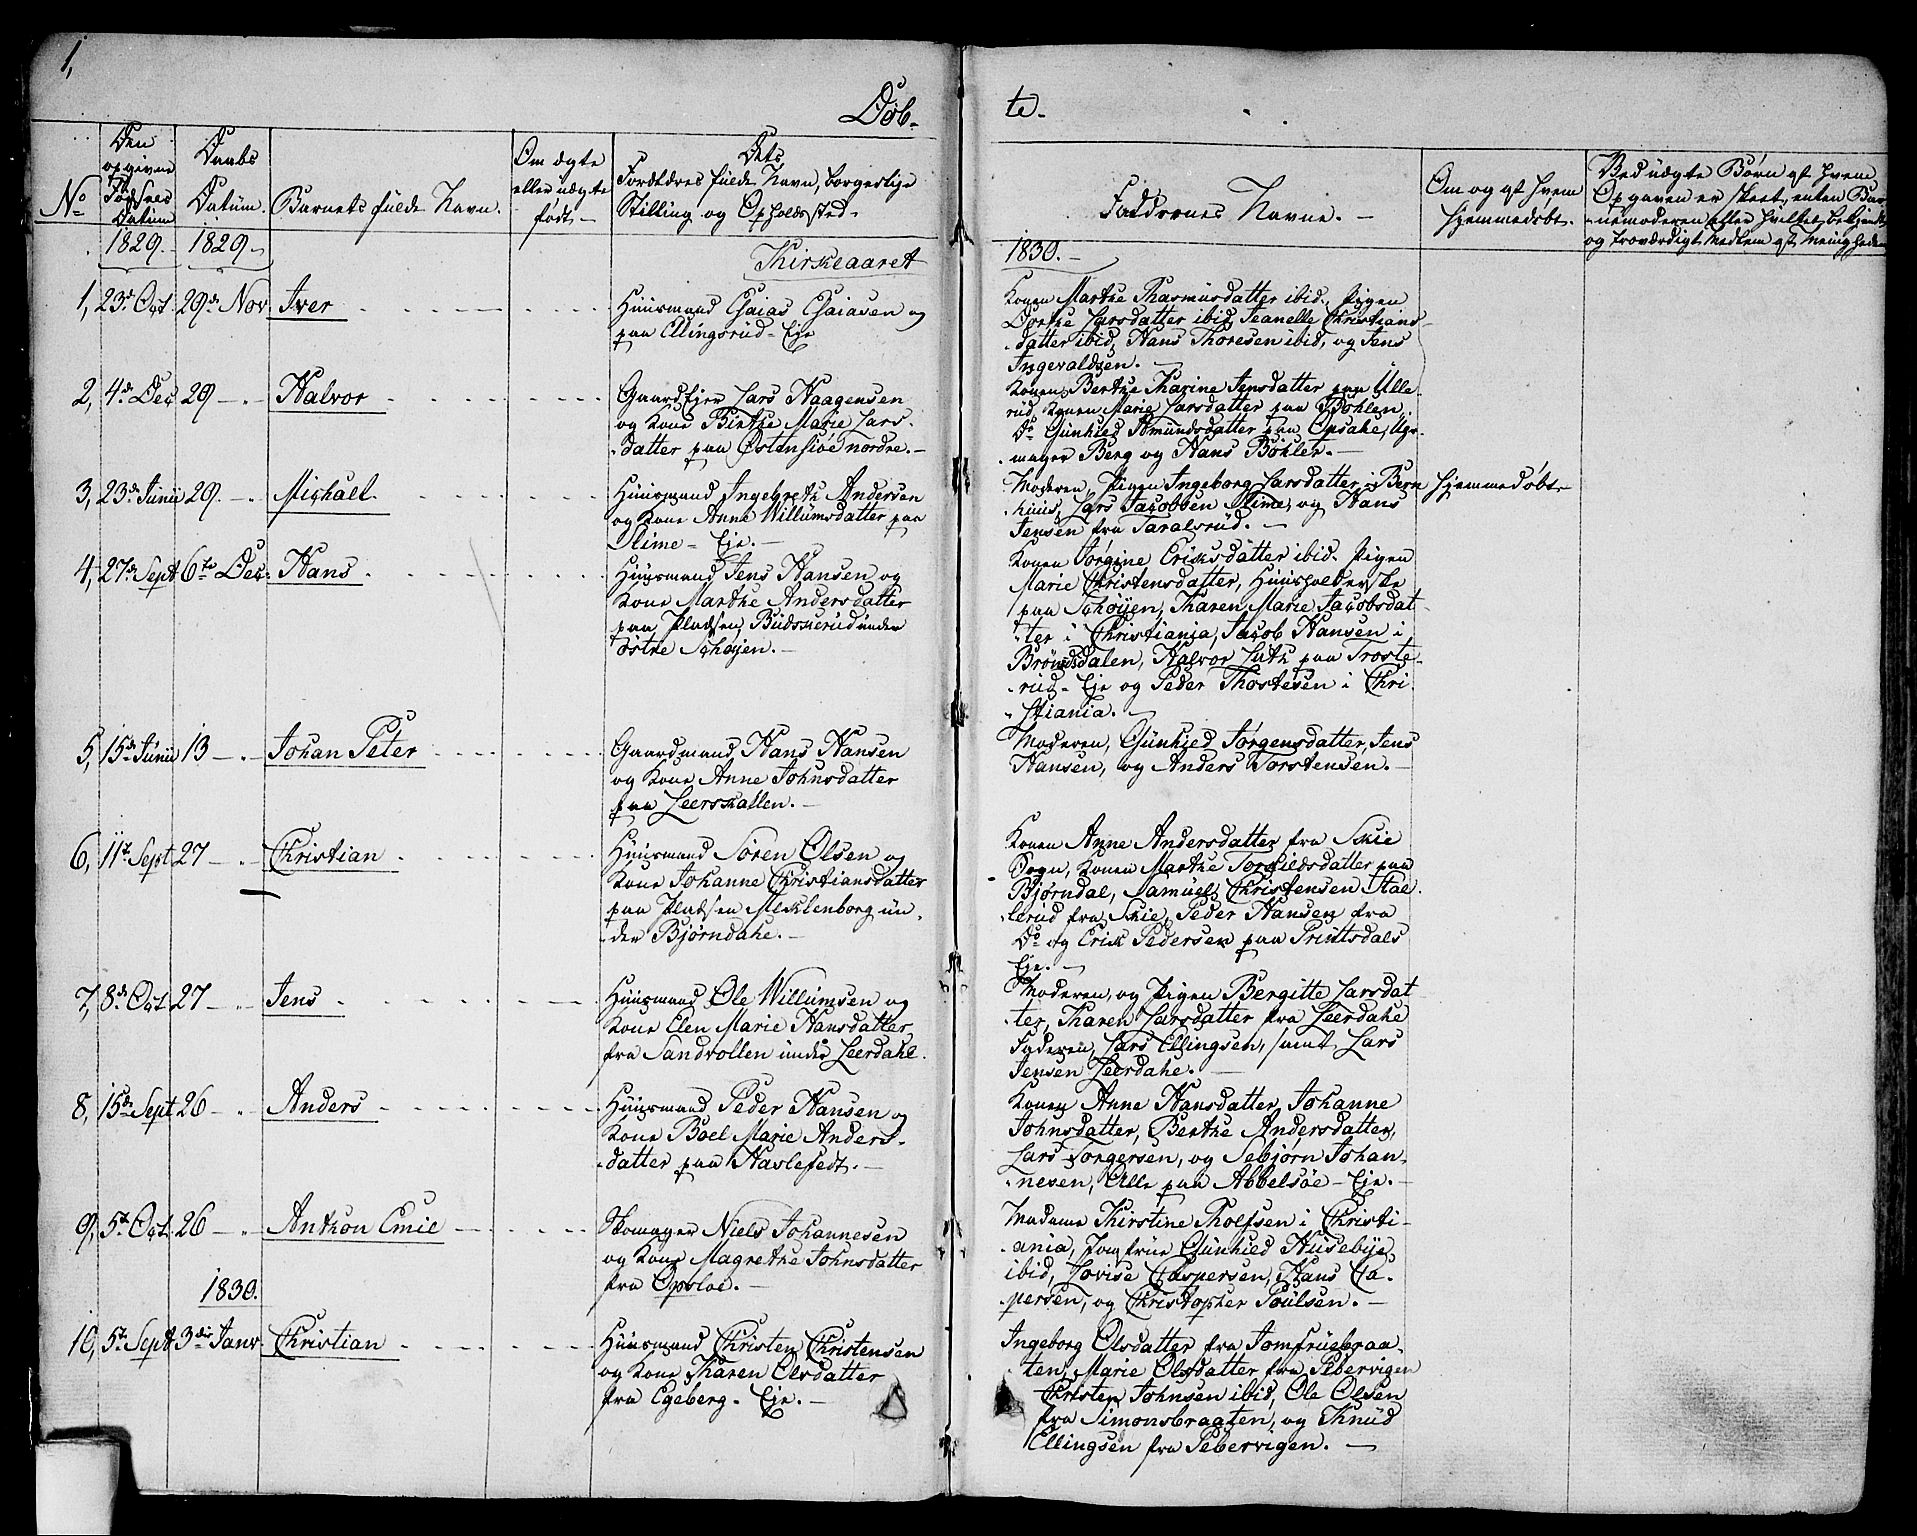 1,
Døb-
te.
No
Den
opgivne
Fødsels
Datum
Daabs
Datum.
Barnets fulde Navn.
Om ægte
eller uægte
født.
Dets
Forældres fulde Navn, borgerlige
Stilling og Opholdssted.
Faddernes Navne.
Om og af hvem
hjemmedøbt.
Ved uægte Børn af hvem
Opgaven er skeet, enten Bar-
nemoderen eller hvilket bekjendt
og troværdigt Medlem af Meenigheden
1829. 1829.
Khirkeaaret
1830.
1, 23d Oct. 29de Nov. Iver
Huusmand Esaias Esaiasen og
paa Ellingsrüd-Eje
Konen Marthe Rasmusdatter ibid, Pigen
Dorthe Larsdatter ibid, Jeanette Christians-
datter ibid, Hans Thoresen ibid, og Jens
Ingevaldsen.
2, 4de Dec 29 Halvor
Gaardejer Lars Haagensen
og Kone Birthe Marie Lars-
datter paa Østensiøe nordre.
Konen Berthe Karine Jensdatter paa Ulle-
rüd, Konen Marie Larsdatter paa Bøhlen,
Do Günhild Amundsdatter paa Opsahl,
mager Berg og Hans Bøhler.
3, 23de Junii 29. Michael.
Huusmand Ingebreth Andersen
og Kone Anne Willumsdatter paa
Slime-Eje.
Moderen, Pigen Ingeborg Larsdatter i Bern
huus, Lars Jacobsen Slime, og Hans
Jensen fra Taralsrüd.
Hjemmedøbt
4, 27de Sept 6te Dec. Hans
Huusmand Jens Hansen og
Kone Marthe Andersdatter
paa Pladsen Budskerüd under
østre Schøjen.
Konen Jørgine Ericksdatter ibid. Pigen
Marie Christensdatter, Huusholderske
paa Schøjen, Karen Marie Jacobsdat-
ter i Christiania, Jacob Hansen i
Brøndsdalen, Halvor Luth paa Troste-
rüd-Eje og Peder Thostesen i Chri-
stiania.
5, 15de Junii 13 Johan Peter
Gaardmand Hans Hansen
og Kone Anne Johnsdatter
paa Leerskallen.
Moderen, Günhild Jørgensdatter, Jens
Hansen, og Anders Torstensen.
6, 11te Sept 27 Christian
Huusmand Søren Olsen og
Kone Johanne Christiansdatter
paa Pladsen Meklenborg un-
der Bjørndahl.
Konen Anne Andersdatter fra Skie
Sogn, Konen Marthe Torkildsdatter paa
Bjørndal, Samuel Christensen Stal-
lerud fra Skie, Peder Hansen fra
Do og Erick Pedersen paa Printsdals
Eje.
7, 8de Oct. 27 Jens
Huusmand Ole Willumsen og
Kone Elen Marie Hansdatter
fra Sandvollen under Leerdahl.
Moderen, og Pigen Bergitte Larsdat-
ter, Karen Larsdatter fra Leerdahl
Faderen, Lars Ellingsen, samt Lars
Jensen Leerdahl.
8, 15de Sept 26 Anders
Huusmand Peder Hansen og
Kone Boel Marie Anders-
datter paa Havlefedt.
Konen Anne Hansdatter, Johanne
Johnsdatter, Berthe Andersdatter,
Lars Torgersen, og Sebjørn Johan-
nesen, Alle paa Abbelsøe-Eje.
9, 5te Oct. 26 Anthon Emil
Skomager Niels Johannesen
og Kone Magrethe Johnsdatter
fra Opsloe.
Madame Kirstine Tholfsen i Christi-
ania, Jomfrue Günhild Hüsebye
ibid, Lovise Caspersen, Hans Ca-
persen, og Christopher Poülsen.
1830.
10, 5te Sept 3die Janr. Christian
Huusmand Christen Christensen
og Kone Karen Olsdatter
fra Egeberg-Eje.
Ingeborg Olsdatter fra Jomfruebraa-
ten, Marie Olsdatter fra Pebervigen
Christen Johnsen ibid, Ole Olsen
fra Simonsbraaten, og Knud
Ellingsen fra Pebervigen.